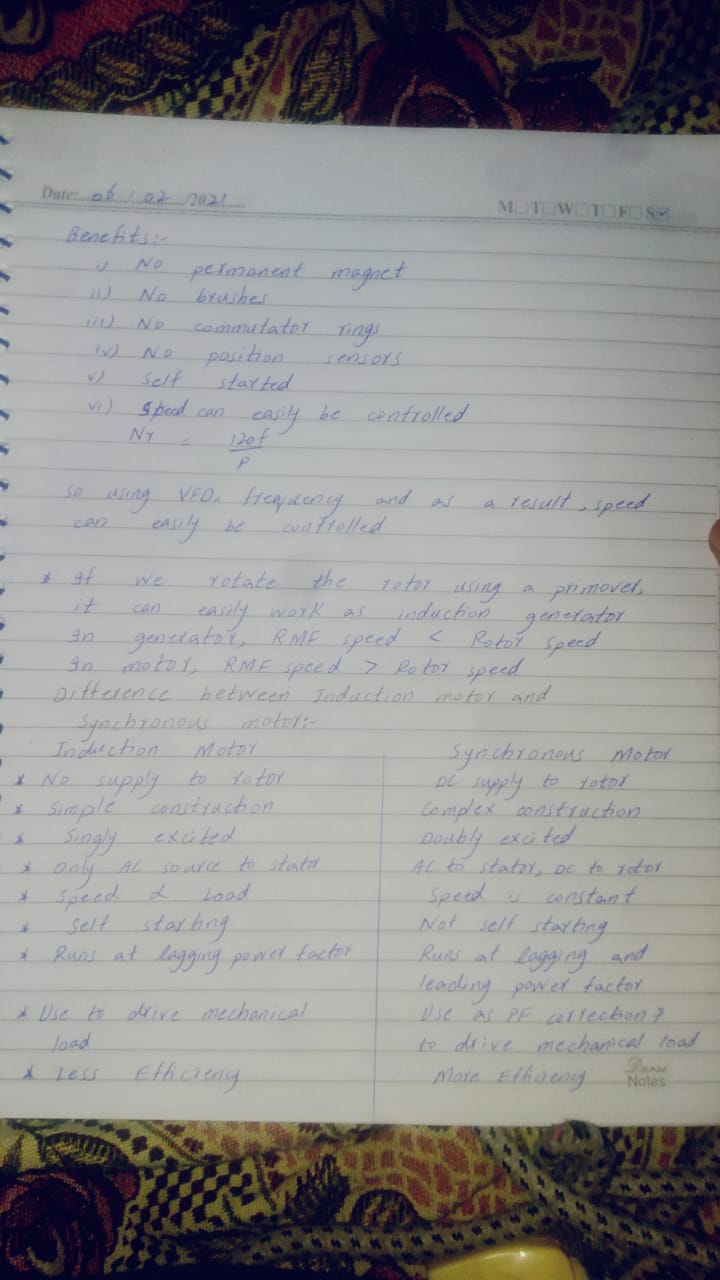 Date: 06 / 02 / 2021 M T W T F S
Benefits:-
i) No permanent magnet
ii) No brushes
iii) No commutator rings
iv) No position sensors
v) Self started
vi) Speed can easily be controlled
Nr = 120f
P
so using VFD, frequency and as a result, speed
can easily be controlled
* If we rotate the rotor using a primover,
it can easily work as induction generator
In generator, RMF speed < Rotor speed
In motor, RMF speed > Rotor speed
Difference between Induction motor and
Synchronous motor:-
Induction Motor Synchronous Motor
* No supply to rotor DC supply to rotor
* Simple construction Complex construction
* Singly excited Doubly excited
* Only AC source to stator AC to stator, DC to rotor
* Speed α Load Speed is constant
* Self starting Not self starting
* Runs at lagging power factor Runs at lagging and
leading power factor
* Use to drive mechanical Use as PF correction &
load to drive mechanical load
* Less Efficiency More Efficiency
Notes